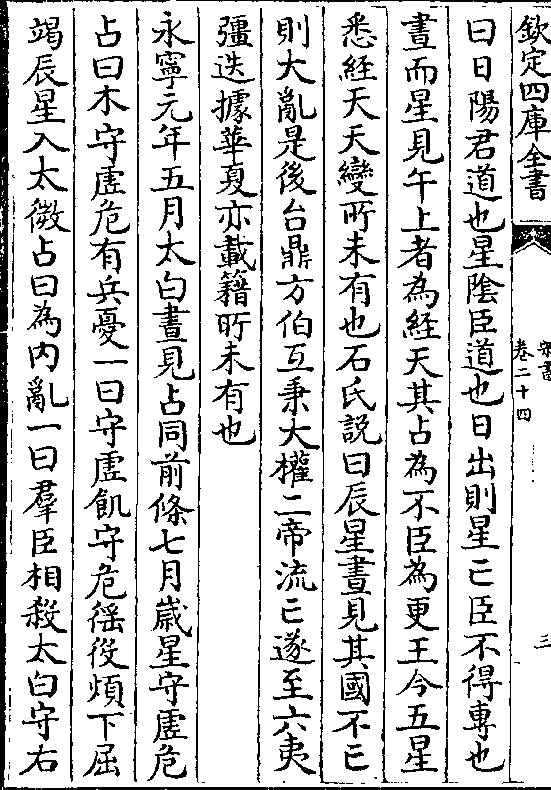 欽定四庫全書
宋書
卷二十四
三
曰日陽君道也星陰臣道也日出則星亡臣不得專也
晝而星見午上者為経天其占為不臣為更王今五星
悉経天天變所未有也石氏説曰辰星晝見其國不亡
則大亂是後台鼎方伯互秉大權二帝流亡遂至六夷
彊迭據華夏亦載籍所未有也
永寧元年五月太白晝見占同前條七月嵗星守虚危
占曰木守虚危有兵憂一曰守虚飢守危徭役煩下屈
竭辰星入太微占曰為内亂一曰羣臣相殺太白守右